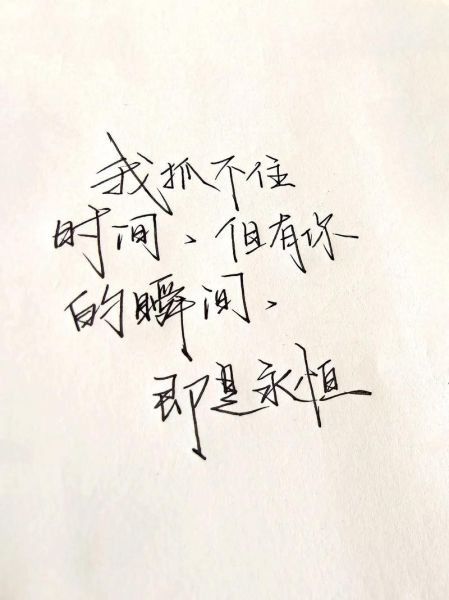 我抓不住
时间、但有你
的瞬间、
即是永恒